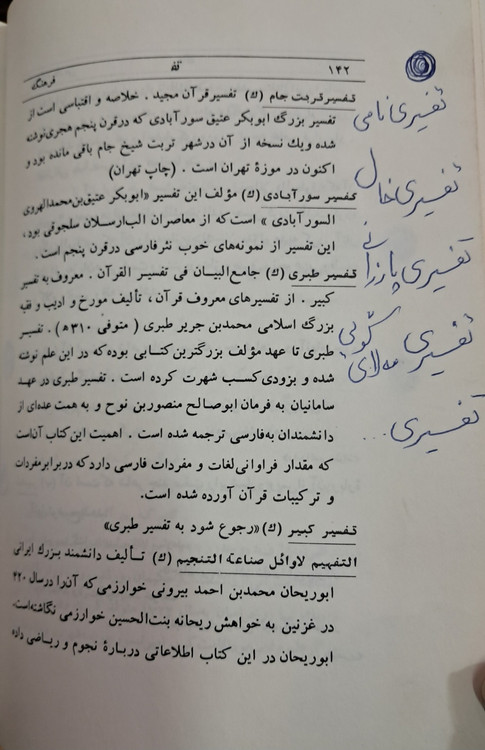 ۱۴۲
تف
فرهنگ
تفسیر تربت جام (ك) تفسیر قرآن مجید . خلاصه و اقتباسی است از
تفسیر بزرگ ابوبکر عتیق سورآبادی که در قرن پنجم هجری نوشته
شده و یك نسخه از آن در شهر تربت شیخ جام باقی مانده بود و
اکنون در موزهٔ تهران است . (چاپ تهران)
تفسیر سورآبادی (ك) مؤلف این تفسیر «ابوبکر عتیق بن محمد الهروی
السورآبادی » است که از معاصران الب ارسلان سلجوقی بود ،
این تفسیر از نمونه‌های خوب نثر فارسی در قرن پنجم است .
تفسیر طبری (ك) جامع البیان فی تفسیر القرآن . معروف به تفسیر
کبیر . از تفسیرهای معروف قرآن ، تألیف مورخ و ادیب و فقیه
بزرگ اسلامی محمد بن جریر طبری ( متوفی ۳۱۰ ه‍ ) . تفسیر
طبری تا عهد مؤلف بزرگترین کتابی بوده که در این علم نوشته
شده و بزودی کسب شهرت کرده است . تفسیر طبری در عهد
سامانیان به فرمان ابوصالح منصور بن نوح و به همت عده‌ای از
دانشمندان به فارسی ترجمه شده است . اهمیت این کتاب آن است
که مقدار فراوانی لغات و مفردات فارسی دارد که در برابر مفردات
و ترکیبات قرآن آورده شده است.
تفسیر کبیر (ك) «رجوع شود به تفسیر طبری»
التفهیم لاوائل صناعة التنجیم (ك) تألیف دانشمند بزرك ایرانی
ابوریحان محمد بن احمد بیرونی خوارزمی که آن را در سال ۴۲۰
در غزنین به خواهش ریحانه بنت الحسین خوارزمی نگاشته است.
ابوریحان در این کتاب اطلاعاتی دربارهٔ نجوم و ریاضی داده
تفسیری نامی
تفسیری خال
تفسیری پازرانی
تفسیری گولی
مه‌لای
تفسیری ...